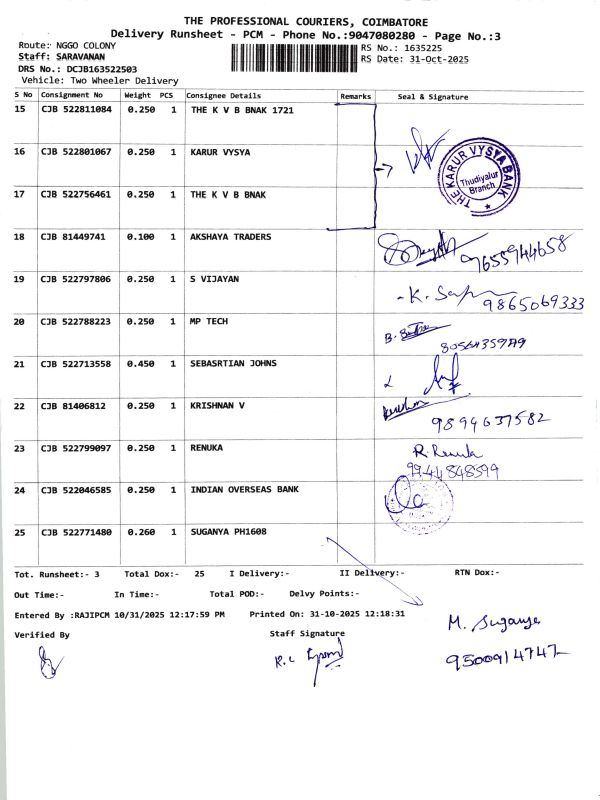 THE PROFESSIONAL COURIERS, COIMBATORE
Delivery Runsheet - PCM - Phone No.:9047080280 - Page No.:3
Route: NGGO COLONY
RS No.: 1635225
Staff: SARAVANAN
RS Date: 31-Oct-2025
DRS No.: DCJB163522503
Vehicle: Two Wheeler Delivery
S No Consignment No Weight PCS Consignee Details Remarks Seal & Signature
15 CJB 522811084 0.250 1 THE K V B BNAK 1721
16 CJB 522801067 0.250 1 KARUR VYSYA
THE KARUR VYSYA BANK
Thudiyalur
Branch
17 CJB 522756461 0.250 1 THE K V B BNAK
18 CJB 81449741 0.100 1 AKSHAYA TRADERS
9655944658
19 CJB 522797806 0.250 1 S VIJAYAN
9865069333
20 CJB 522788223 0.250 1 MP TECH
21 CJB 522713558 0.450 1 SEBASRTIAN JOHNS
22 CJB 81406812 0.250 1 KRISHNAN V
9894637582
23 CJB 522799097 0.250 1 RENUKA
R. Renuka
9944848599
24 CJB 522046585 0.250 1 INDIAN OVERSEAS BANK
25 CJB 522771480 0.260 1 SUGANYA PH1608
Tot. Runsheet:- 3 Total Dox:- 25 I Delivery:- II Delivery:- RTN Dox:-
Out Time:- In Time:- Total POD:- Delvy Points:-
Entered By :RAJIPCM 10/31/2025 12:17:59 PM Printed On: 31-10-2025 12:18:31
M. Suganya
Verified By Staff Signature
9500914747